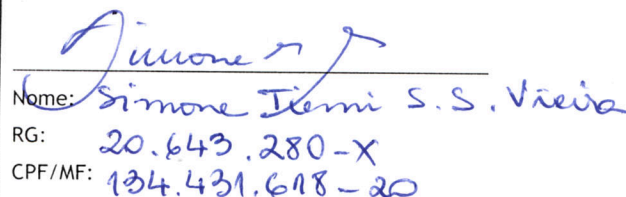 Simone
Nome: Simone Iemi S. S. Vieira
RG: 20.643.280-X
CPF/MF: 134.431.618-20